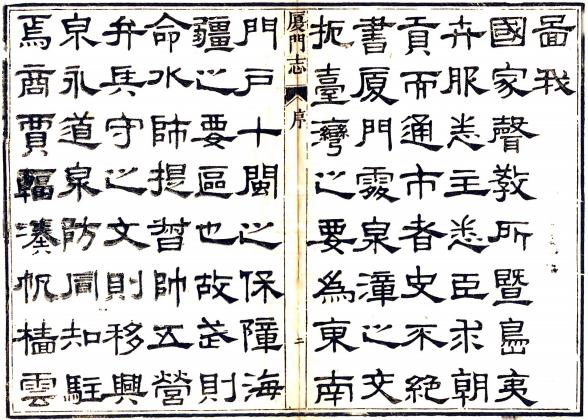 圖我
國家聲教所暨島夷
卉服悉主悉臣求朝
貢而通市者史不絕
書厦門處泉漳之交
扼臺灣之要為東南
厦門志 序 二
門戶十閩之保障海
疆之要區也故武則
命水師提督帥五營
弁兵守之文則移興
泉永道泉防同知駐
焉商賈輻湊帆檣雲